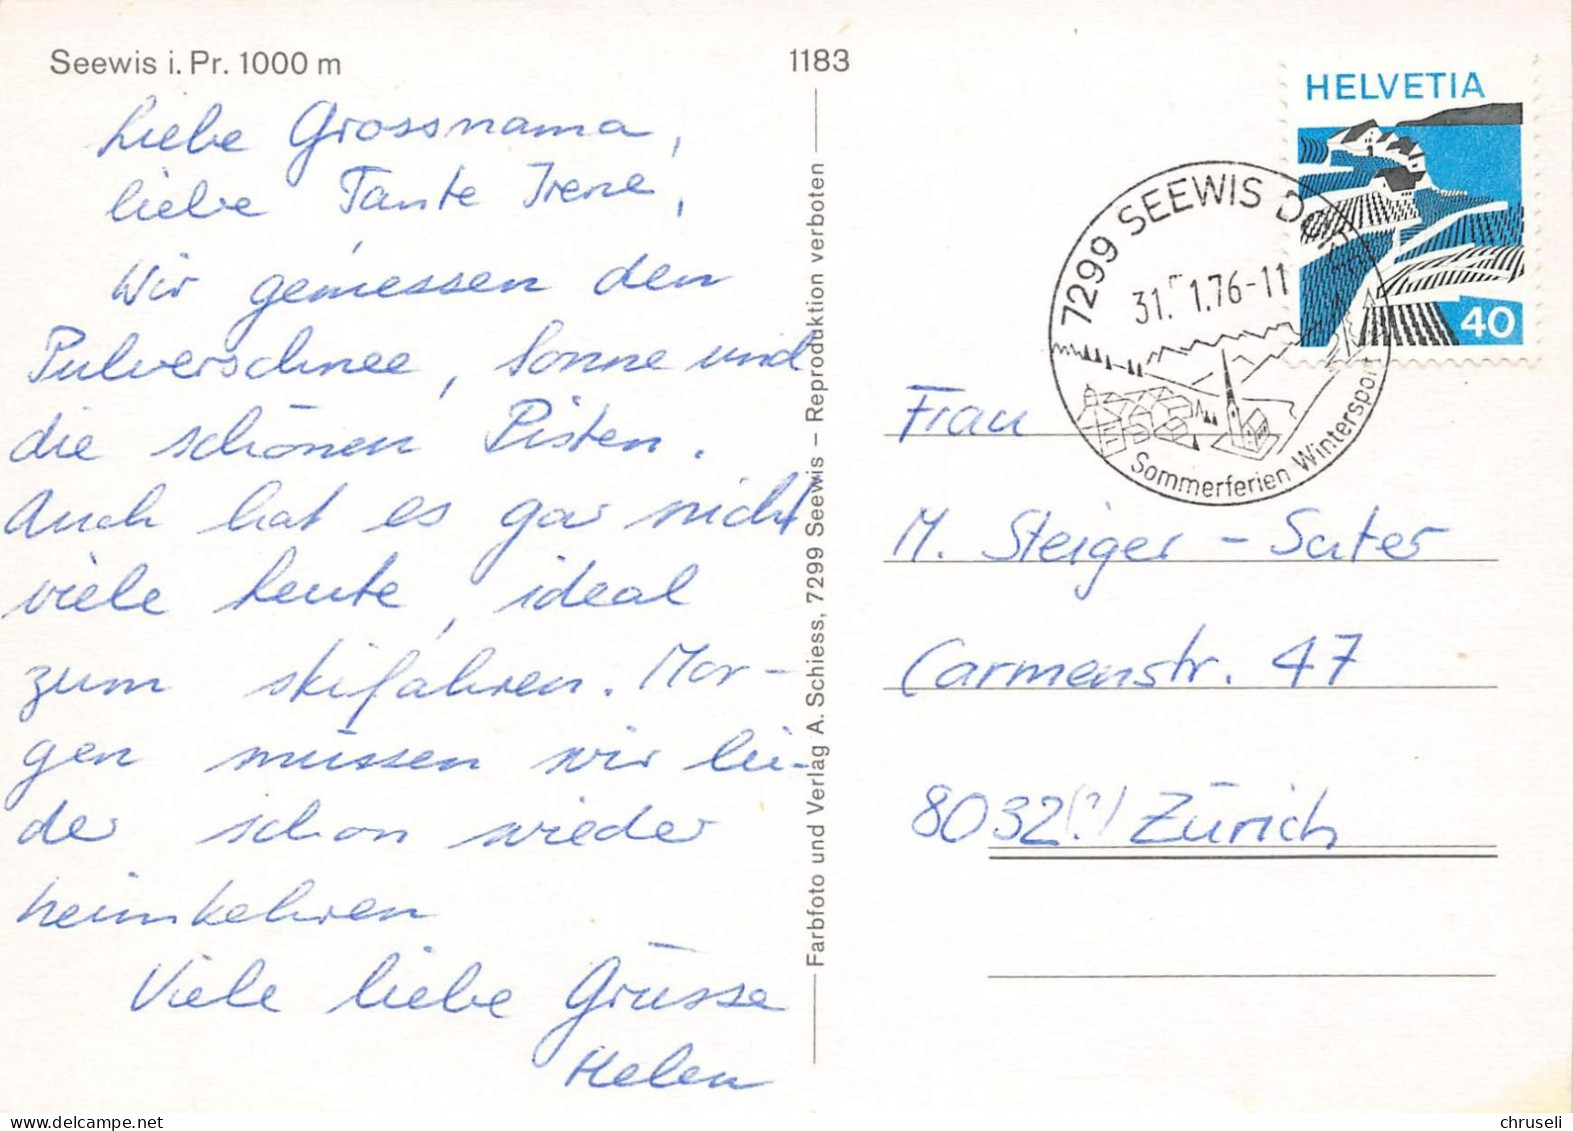 Seewis i. Pr. 1000 m
1183
Liebe Grossmama,
liebe Tante Irene,
Wir geniessen den
Pulverschnee, Sonne und
die schönen Pisten.
Auch hat es gar nicht
viele Leute, ideal
zum skifahren. Mor-
gen müssen wir lei-
der schon wieder
heimkehren
Viele liebe Grüsse
Helen
Farbfoto und Verlag A. Schiess, 7299 Seewis – Reproduktion verboten
HELVETIA
40
7299 SEEWIS DORF
31. 1.76-11
Sommerferien Wintersport
Frau
M. Steiger - Suter
Carmenstr. 47
8032(?) Zürich
chruseli